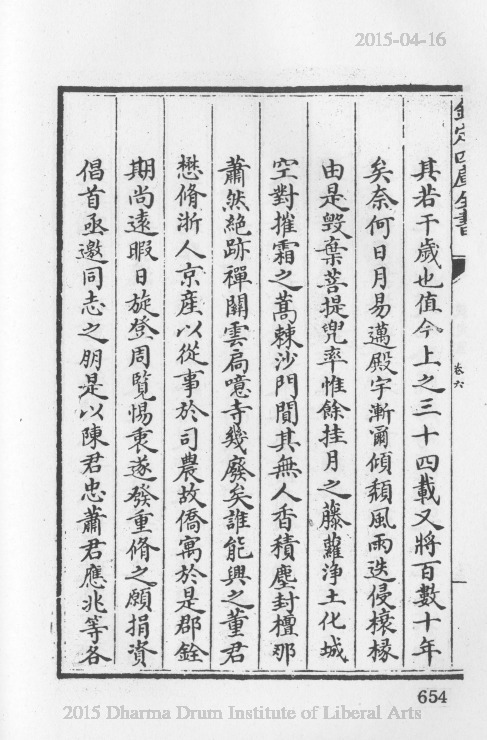 2015-04-16
欽定四庫全書
卷六
其若干歲也值今上之三十四載又將百數十年
矣奈何日月易邁殿宇漸爾傾頹風雨迭侵榱椽
由是毀棄菩提兜率惟餘挂月之藤蘿淨土化城
空對摧霜之蒿棘沙門閴其無人香積塵封檀那
蕭然絶跡禪關雲扃噫寺幾廢矣誰能興之董君
懋脩浙人京産以從事於司農故僑寓於是郡銓
期尚遠暇日旋登周覽惕衷遂發重脩之願捐資
倡首亟邀同志之朋是以陳君忠蕭君應兆等各
654
2015 Dharma Drum Institute of Liberal Arts